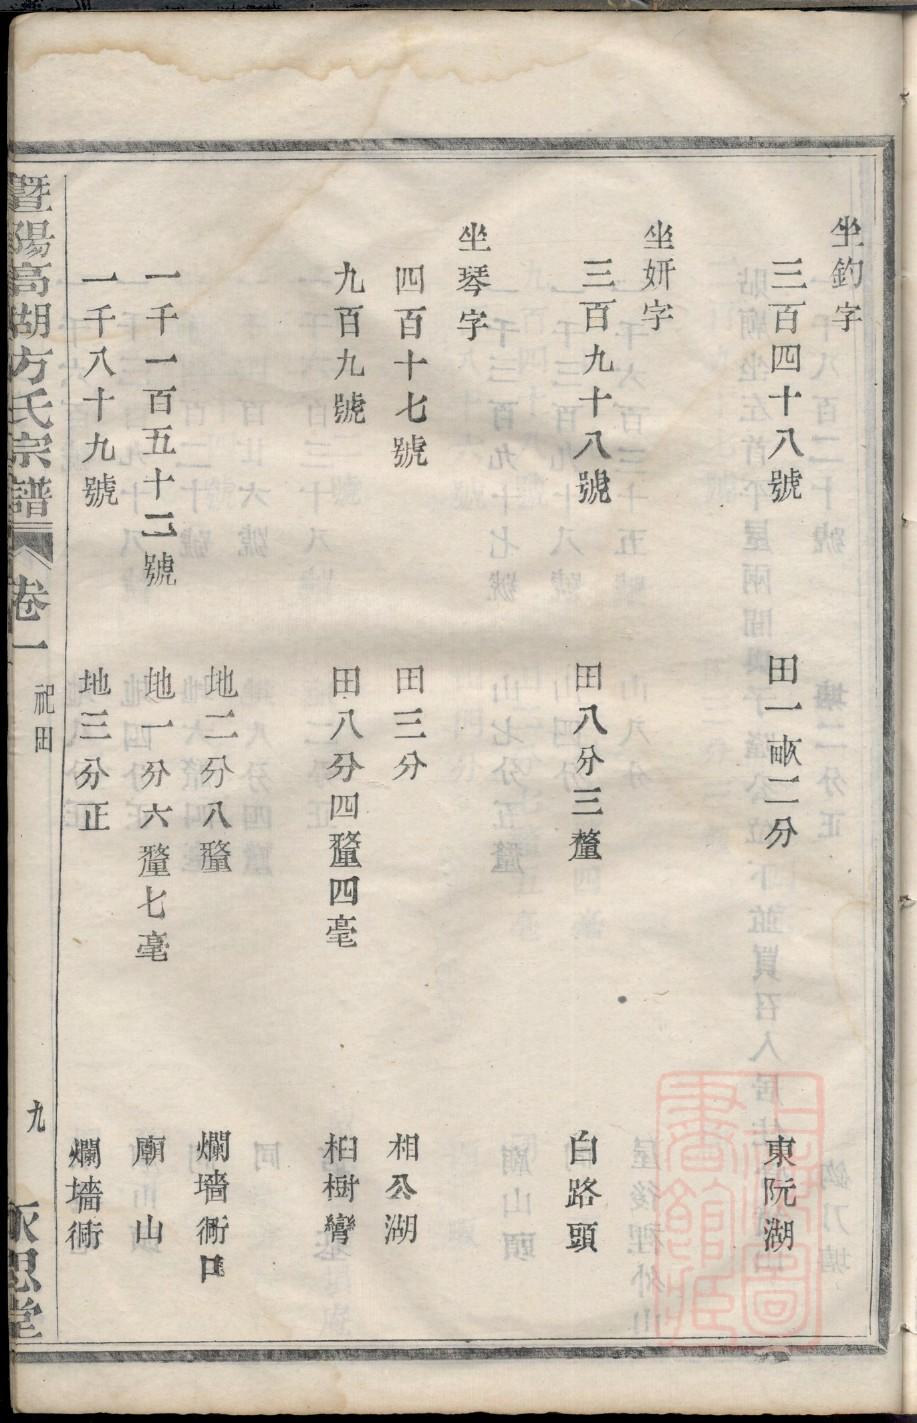 坐鈞字
三百四十八號 田一畝二分 東阮湖
坐妍字
三百九十八號 田八分三釐 白路頭
坐琴字
四百十七號 田三分 相公湖
九百九號 田八分四釐四毫 桕樹彎
地二分八釐 爛墻衖口
一千一百五十二號 地一分六釐七毫 廟山
一千八十九號 地三分正 爛墻衖
暨陽高湖方氏宗譜 卷一 祀田 九 永思堂